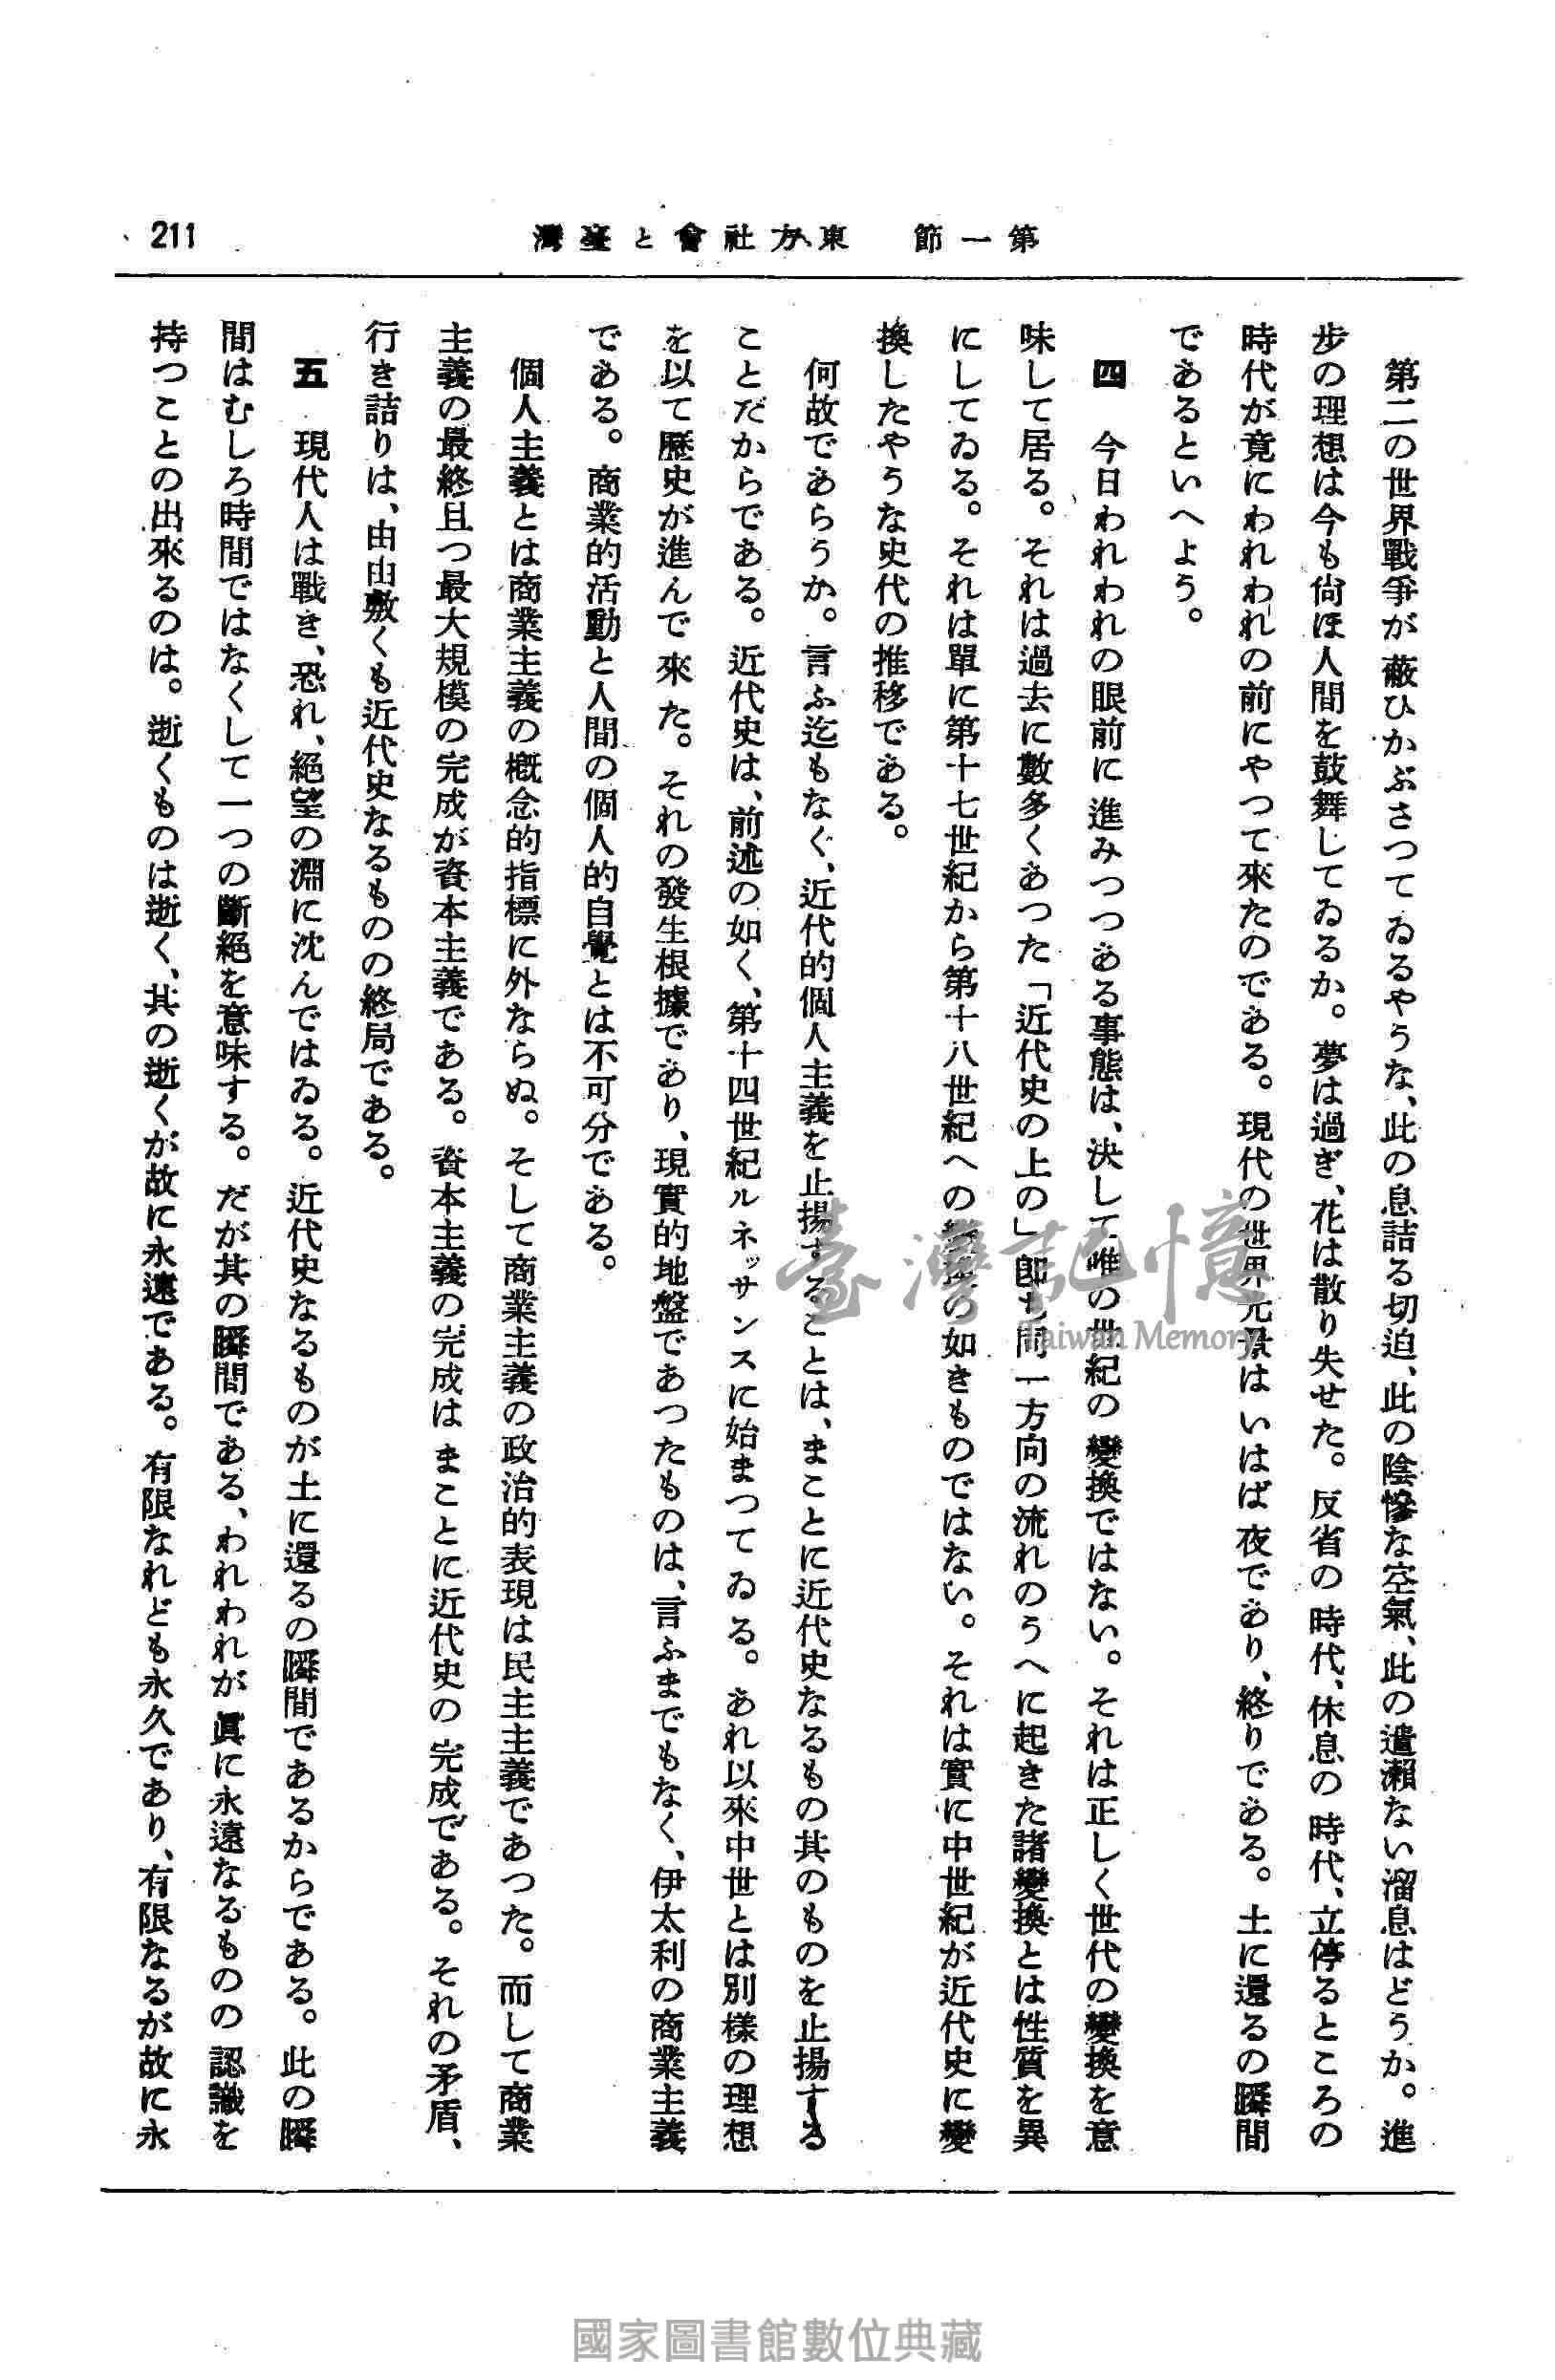 第一節　東方社會と臺灣
211
第二の世界戰爭が蔽ひかぶさつてゐるやうな、此の息詰る切迫、此の陰慘な空氣、此の遣瀨ない溜息はどうか。進
步の理想は今も尙ほ人間を鼓舞してゐるか。夢は過ぎ、花は散り失せた。反省の時代、休息の時代、立停るところの
時代が竟にわれわれの前にやつて來たのである。現代の世界光景はいはば夜であり、終りである。土に還るの瞬間
であるといへよう。
四　今日われわれの眼前に進みつつある事態は、決して唯の世紀の變換ではない。それは正しく世代の變換を意
味して居る。それは過去に數多くあつた「近代史の上の」卽ち同一方向の流れのうへに起きた諸變換とは性質を異
にしてゐる。それは單に第十七世紀から第十八世紀への變換の如きものではない。それは實に中世紀が近代史に變
換したやうな史代の推移である。
何故であらうか。言ふ迄もなく、近代的個人主義を止揚することは、まことに近代史なるもの其のものを止揚する
ことだからである。近代史は、前述の如く、第十四世紀ルネッサンスに始まつてゐる。あれ以來中世とは別樣の理想
を以て歷史が進んで來た。それの發生根據であり、現實的地盤であつたものは、言ふまでもなく、伊太利の商業主義
である。商業的活動と人間の個人的自覺とは不可分である。
個人主義とは商業主義の槪念的指標に外ならぬ。そして商業主義の政治的表現は民主主義であつた。而して商業
主義の最終且つ最大規模の完成が資本主義である。資本主義の完成はまことに近代史の完成である。それの矛盾、
行き詰りは、由由敷くも近代史なるものの終局である。
五　現代人は戰き、恐れ、絕望の淵に沈んではゐる。近代史なるものが土に還るの瞬間であるからである。此の瞬
間はむしろ時間ではなくして一つの斷絕を意味する。だが其の瞬間である、われわれが眞に永遠なるものの認識を
持つことの出來るのは。逝くものは逝く、其の逝くが故に永遠である。有限なれども永久であり、有限なるが故に永
臺灣記憶
Taiwan Memory
國家圖書館數位典藏